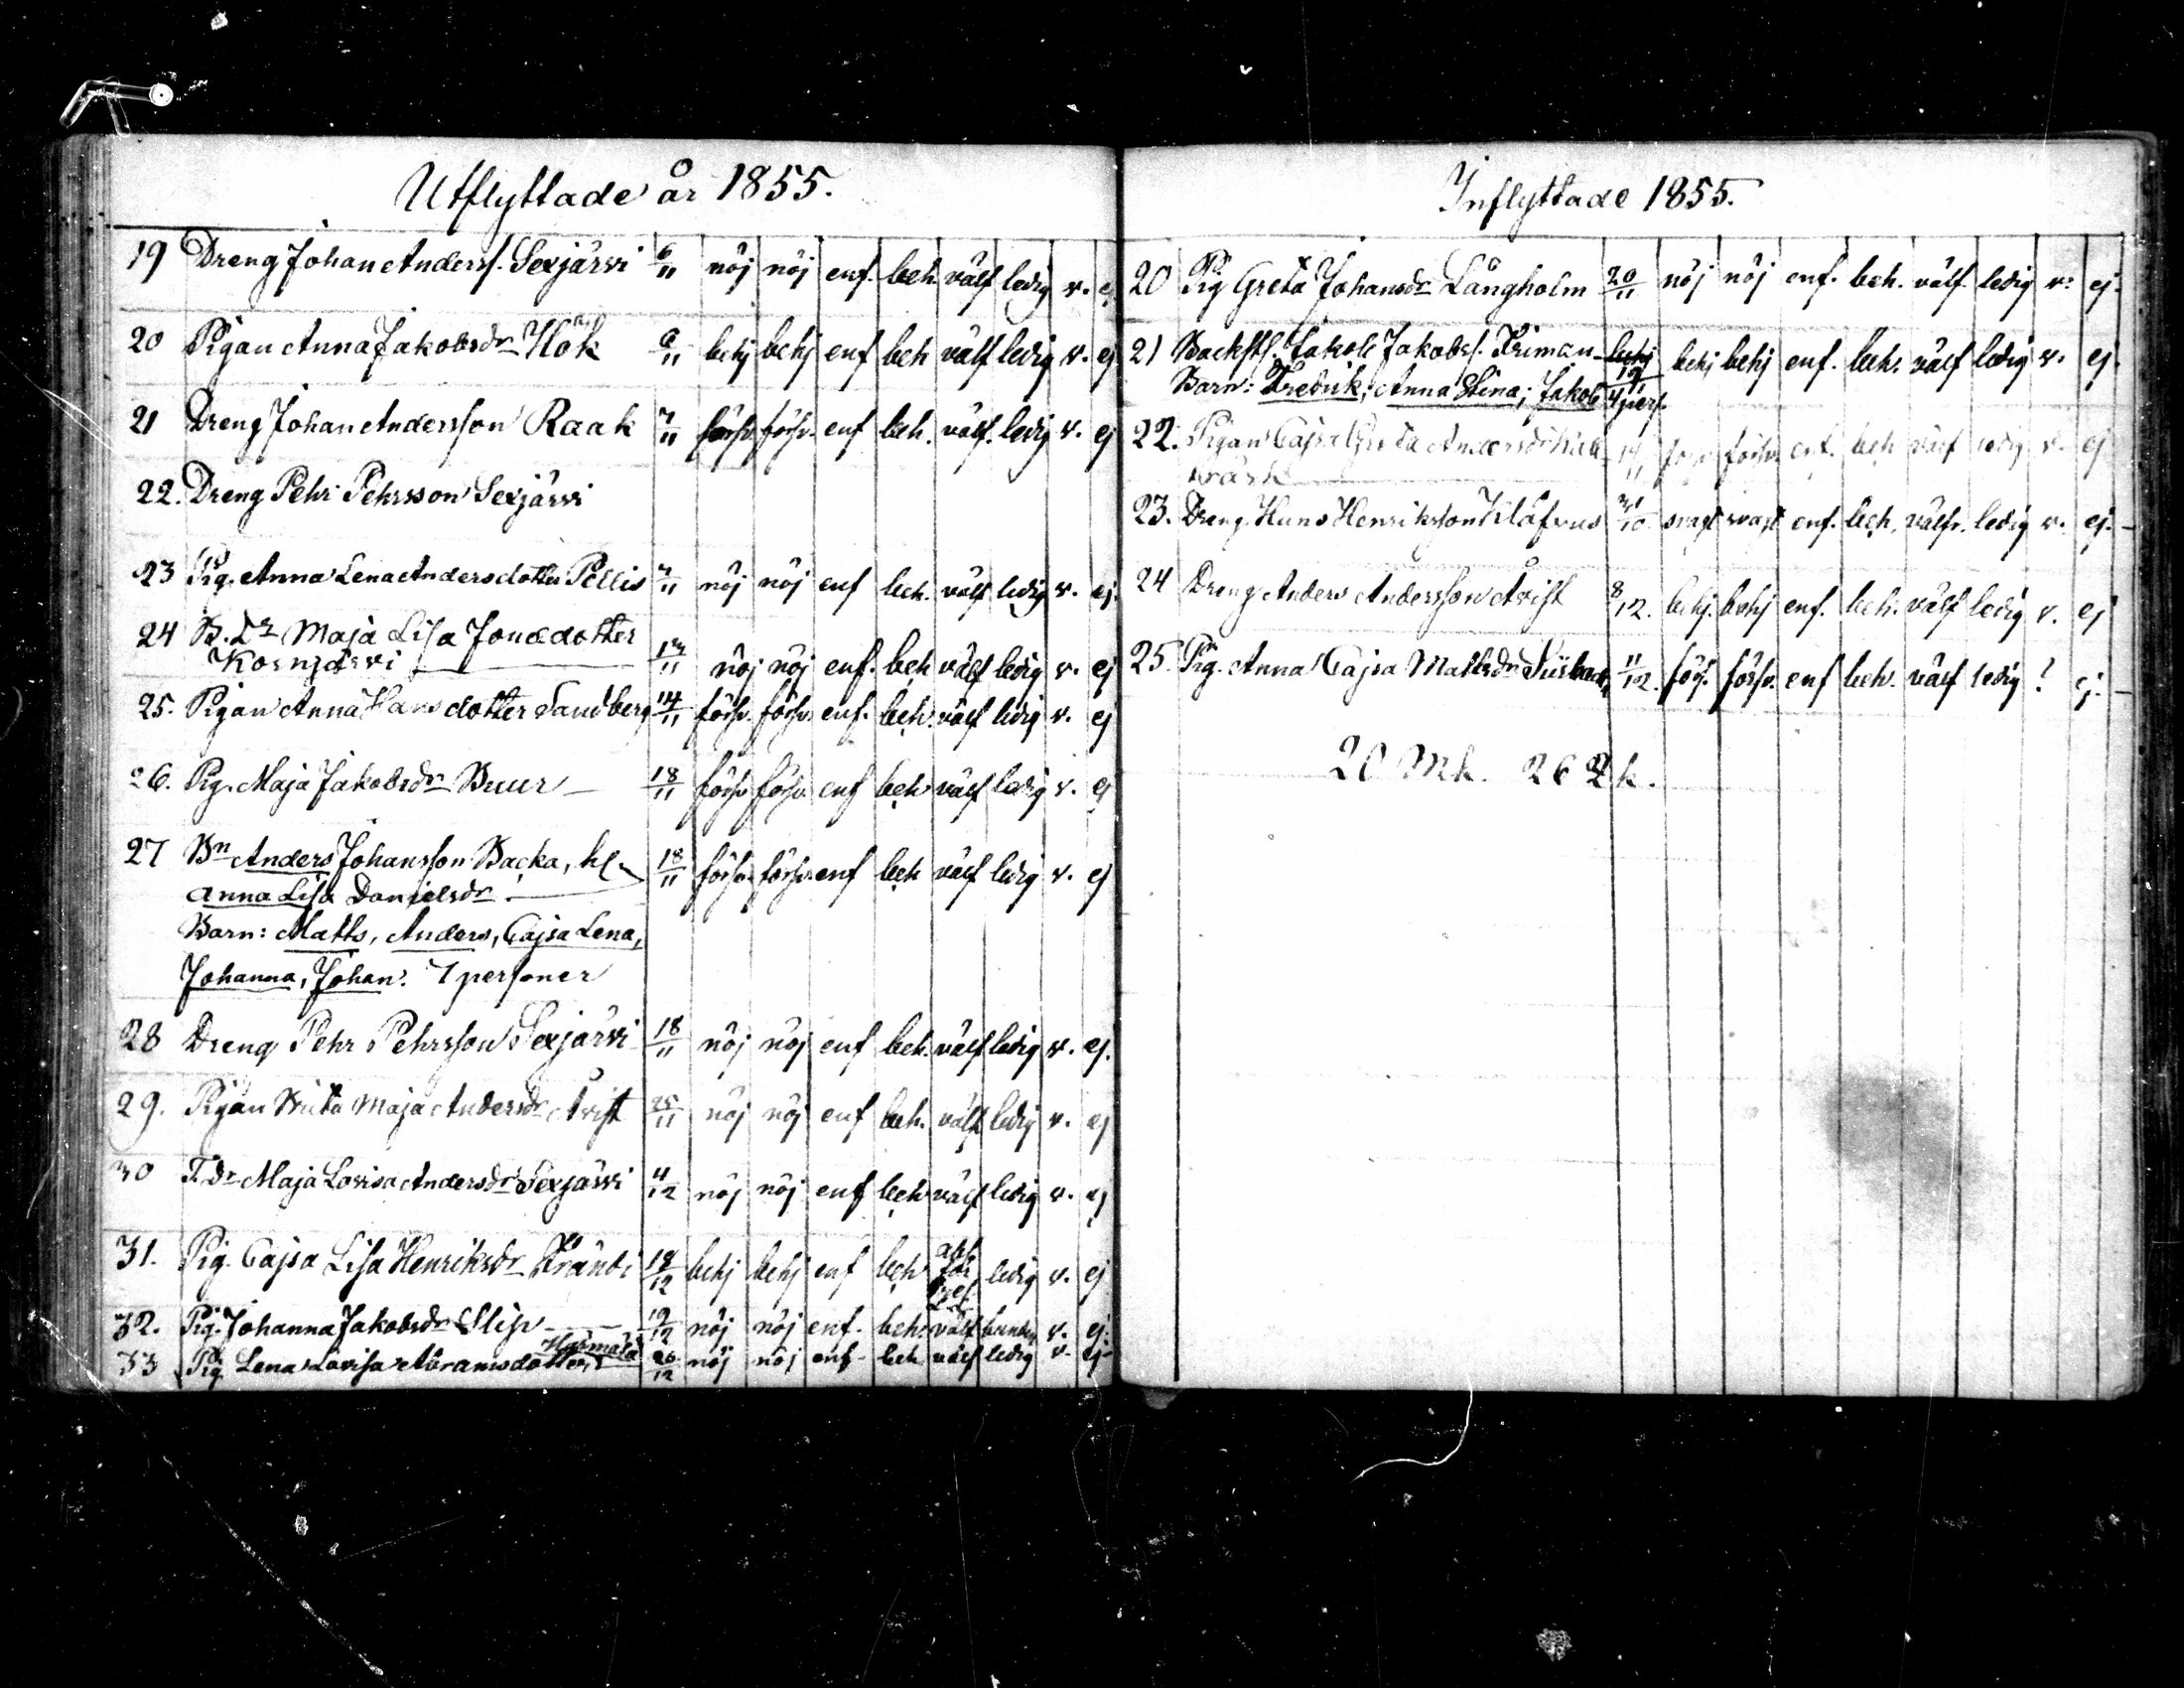 Utflyttade år 1855.
19 Dreng Johan Anderss. Sexjärvi 6/11 nöj nöj enf. beh. välf ledig v. ej
20 Pigan Anna Jakobsdr Hök 6/11 behj behj enf beh välf ledig v. ej
21 Dreng Johan Andersson Raak 7/11 försv. försv. enf beh. välf. ledig v. ej
22. Dreng Pehr Pehrsson Sexjärvi
23 Pig. Anna Lena Andersdotter Pellis 7/11 nöj nöj enf beh. välf ledig v. ej
24 B. Dr Maja Lisa Jonædotter
Korsjärvi 13/11 nöj nöj enf. beh välf ledig v. ej
25. Pigan Anna Hansdotter Sandberg 14/11 försv. försv. enf. beh. välf ledig v. ej
26. Pig. Maja Jakobsdr Buur 18/11 försv försv enf beh välf ledig v. ej
27 Bn Anders Johansson Backa, h.
Anna Lisa Danielsdr. 18/11 försv. försv. enf beh välf ledig v. ej
Barn: Matts, Anders, Cajsa Lena,
Johanna, Johan. 7 personer
28 Dreng Pehr Pehrsson Sexjärvi 18/11 nöj nöj enf beh. välf ledig v. ej.
29. Pigan Brita Maja Andersdr Åvist 25/11 nöj nöj enf beh. välf ledig v. ej
30 T. dr Maja Lovisa Andersdr Sexjärvi 4/12 nöj nöj enf beh välf ledig v. ej
31. Pig. Cajsa Lisa Henriksdr 18/12 behj behj enf beh ledig v. ej
32. Pig. Johanna Jakobsdr Slip 19/12 nöj nöj enf. beh. välf bunden v. ej.
Härmälä
33 Pig. Lena Lovisa Abramsdotter, 26/12 nöj nöj enf. beh välf ledig v. ej
Inflyttade 1855.
20 Pig Greta Johansdr Långholm 20/11 nöj nöj enf. beh. välf. ledig v. ej.
21 Backsts. Jakob Jakobss. Friman behj behj behj enf. beh. välf ledig v. ej.
Barn: Fredrik; Anna Stina; Jakob 4 pers.
22. Pigan Cajsa Greta Andersdr 14/11 försv. enf. beh välf ledig v. ej
23. Dreng. Hans Henriksson Klåfvus 31/10 svagt svagt enf. beh. välfr. ledig v. ej.
24 Dreng Anders Andersson Åvist 8/12. behj. behj enf. beh. välf ledig v. ej
25. Pig. Anna Cajsa Mattsdr 11/12. förs. försv. enf beh. välf ledig ? ej.
20 Mk. 26 Qk.